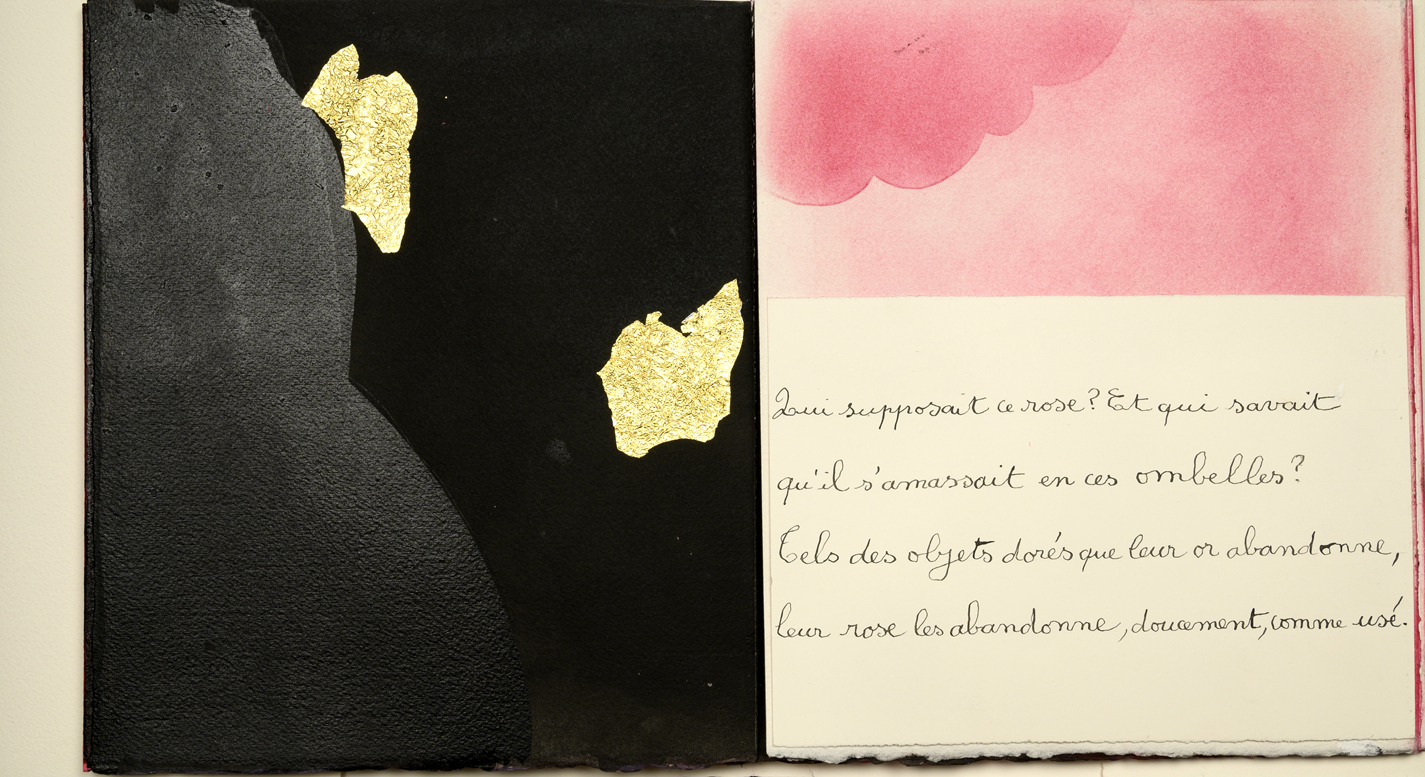 Qui supposait ce rose? Et qui savait
qu'il s'amassait en ces ombelles?
Tels des objets dorés que leur or abandonne,
leur rose les abandonne, doucement, comme usé.